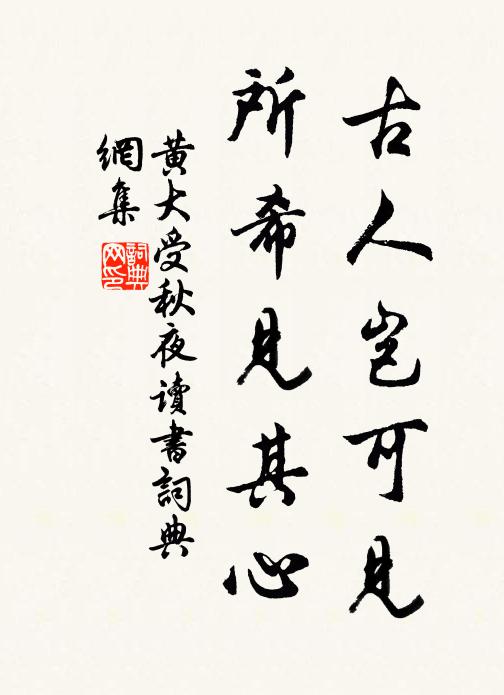 古人岂可見
所希見其心
黄大受秋夜讀書詞典
網集
詞典
网印